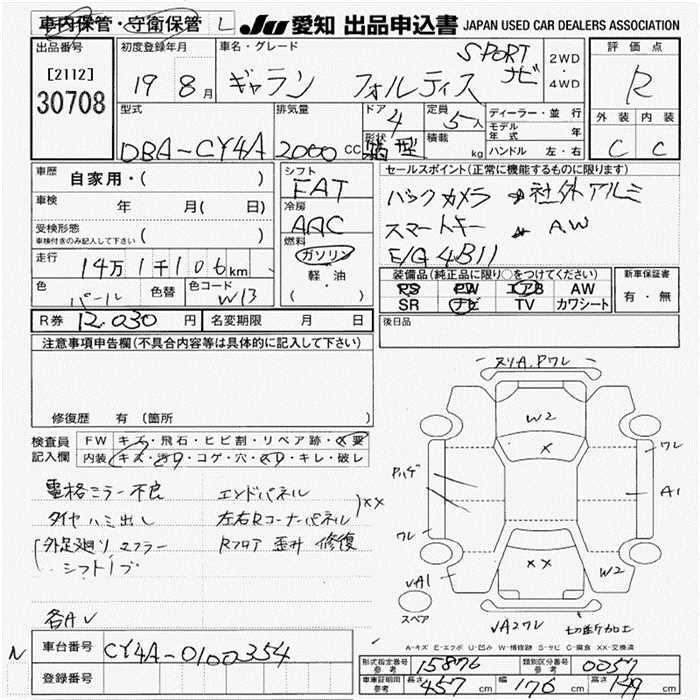 車内保管・守衛保管 L JU 愛知 出品申込書 JAPAN USED CAR DEALERS ASSOCIATION
出品番号 [2112] 30708
初度登録年月 19 8月
車名・グレード ギャラン フォルティス SPORT ナビ
2WD・4WD
評価点 R
外装 内装 C C
型式 DBA-CY4A
排気量 2000 cc
ドア 4
形状 箱型
定員 5人
積載 kg
ディーラー・並行
モデル年式 年
ハンドル 左・右
車歴 自家用・( )
車検 年 月( 日)
受検形態 車検付きのみ記入して下さい ( )
走行 14万1千106km
色 パール 色替 色コード W13
シフト FAT
冷房 AAC
燃料 ガソリン 軽油 ( )
セールスポイント(正常に機能するものに限ります)
バックカメラ 社外アルミ
スマートキー AW
E/G 4B11
装備品(純正品に限り○をつけてください)
PS PW エアB AW
SR ナビ TV カワシート
新車保証書 有・無
後日品
R券 12.030円 名変期限 月 日
注意事項申告欄(不具合内容等は具体的に記入して下さい)
修復歴 有(箇所
検査員記入欄
FW キズ・飛石・ヒビ割・リペア跡・X要
内装 キズ・汚レ・コゲ・穴・スレ・キレ・破レ
電格ミラー不良
タイヤハミ出し
外足廻り マフラー
シフトノブ
各AU
エンドパネル
左右Rコーナーパネル XX
Rフロア 歪み 修復
スリA.Pワレ
W2
X
ワレ
Pハゲ
A1
ワレ
VA1
XX
W2
スペア
VA2ワレ
切断加工
A-キズ E-エクボ U-凹み W-補修跡 S-サビ C-腐食 XX-交換済
N 車台番号 CY4A-0100354
登録番号
形式指定番号 参考 15876
類別区分番号 参考 0057
車庫証明用 参考 長さ 457cm 幅 176cm 高さ 149cm